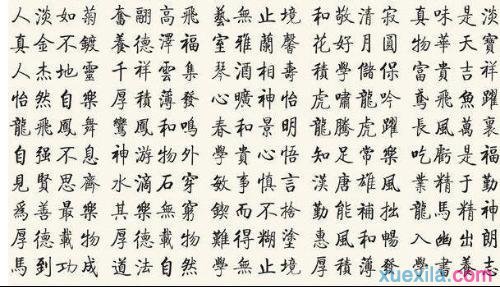 人淡如菊 奮翮高飛 藝無止境 和敬清寂 真味是淡
真金不鍍 養德澤福 室雅蘭馨 花好月圓 物華天寶
人杰地靈 千祥雲集 琴酒相壽 積學儲保 富貴吉祥
怡然自樂 厚積薄發 心曠神怡 虎嘯龍吟 鳶飛魚躍
龍飛鳳舞 鸞鳳和鳴 春和景明 龍騰虎躍 長風萬裏
自强不息 神游物外 學貴心悟 知足常樂 吃虧是福
見賢思齊 水滴石穿 敏事慎言 漢唐雄風 業精于勤
爲善最樂 其樂無窮 鍥而不捨 勤能補拙 馬精神
厚德載物 厚德載物 難得糊塗 惠風和暢 龍入幽出朗
馬到功成 道法自然 學無止境 厚積薄發 書養志
xuexila.com